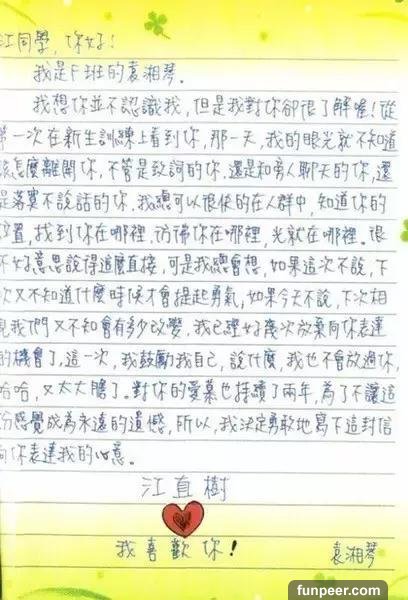 江同學，你好！
我是F班的袁湘琴。
我想你並不認識我，但是我對你卻很了解喔！從
第一次在新生訓練上看到你，那一天，我的眼光就不知道
該怎麼離開你，不管是致詞的你，還是和旁人聊天的你，還
是落寞不說話的你，我總可以很快的在人群中，知道你的
位置，找到你在哪裡，彷彿你在哪裡，光就在哪裡。很
不好意思說得這麼直接，可是我總會想，如果這次不說，下
次又不知道什麼時候才會提起勇氣，如果今天不說，下次相
見我們又不知會有多少改變，我已經好幾次放棄向你表達
的機會了，這一次，我鼓勵我自己，說什麼，我也不會放過你，
哈哈，又太大膽了。對你的愛慕也持續了兩年，為了不讓這
份感覺成為永遠的遺憾，所以，我決定勇敢地寫下這封信
向你表達我的心意。
江直樹
我喜歡你！
袁湘琴
funpeer.com